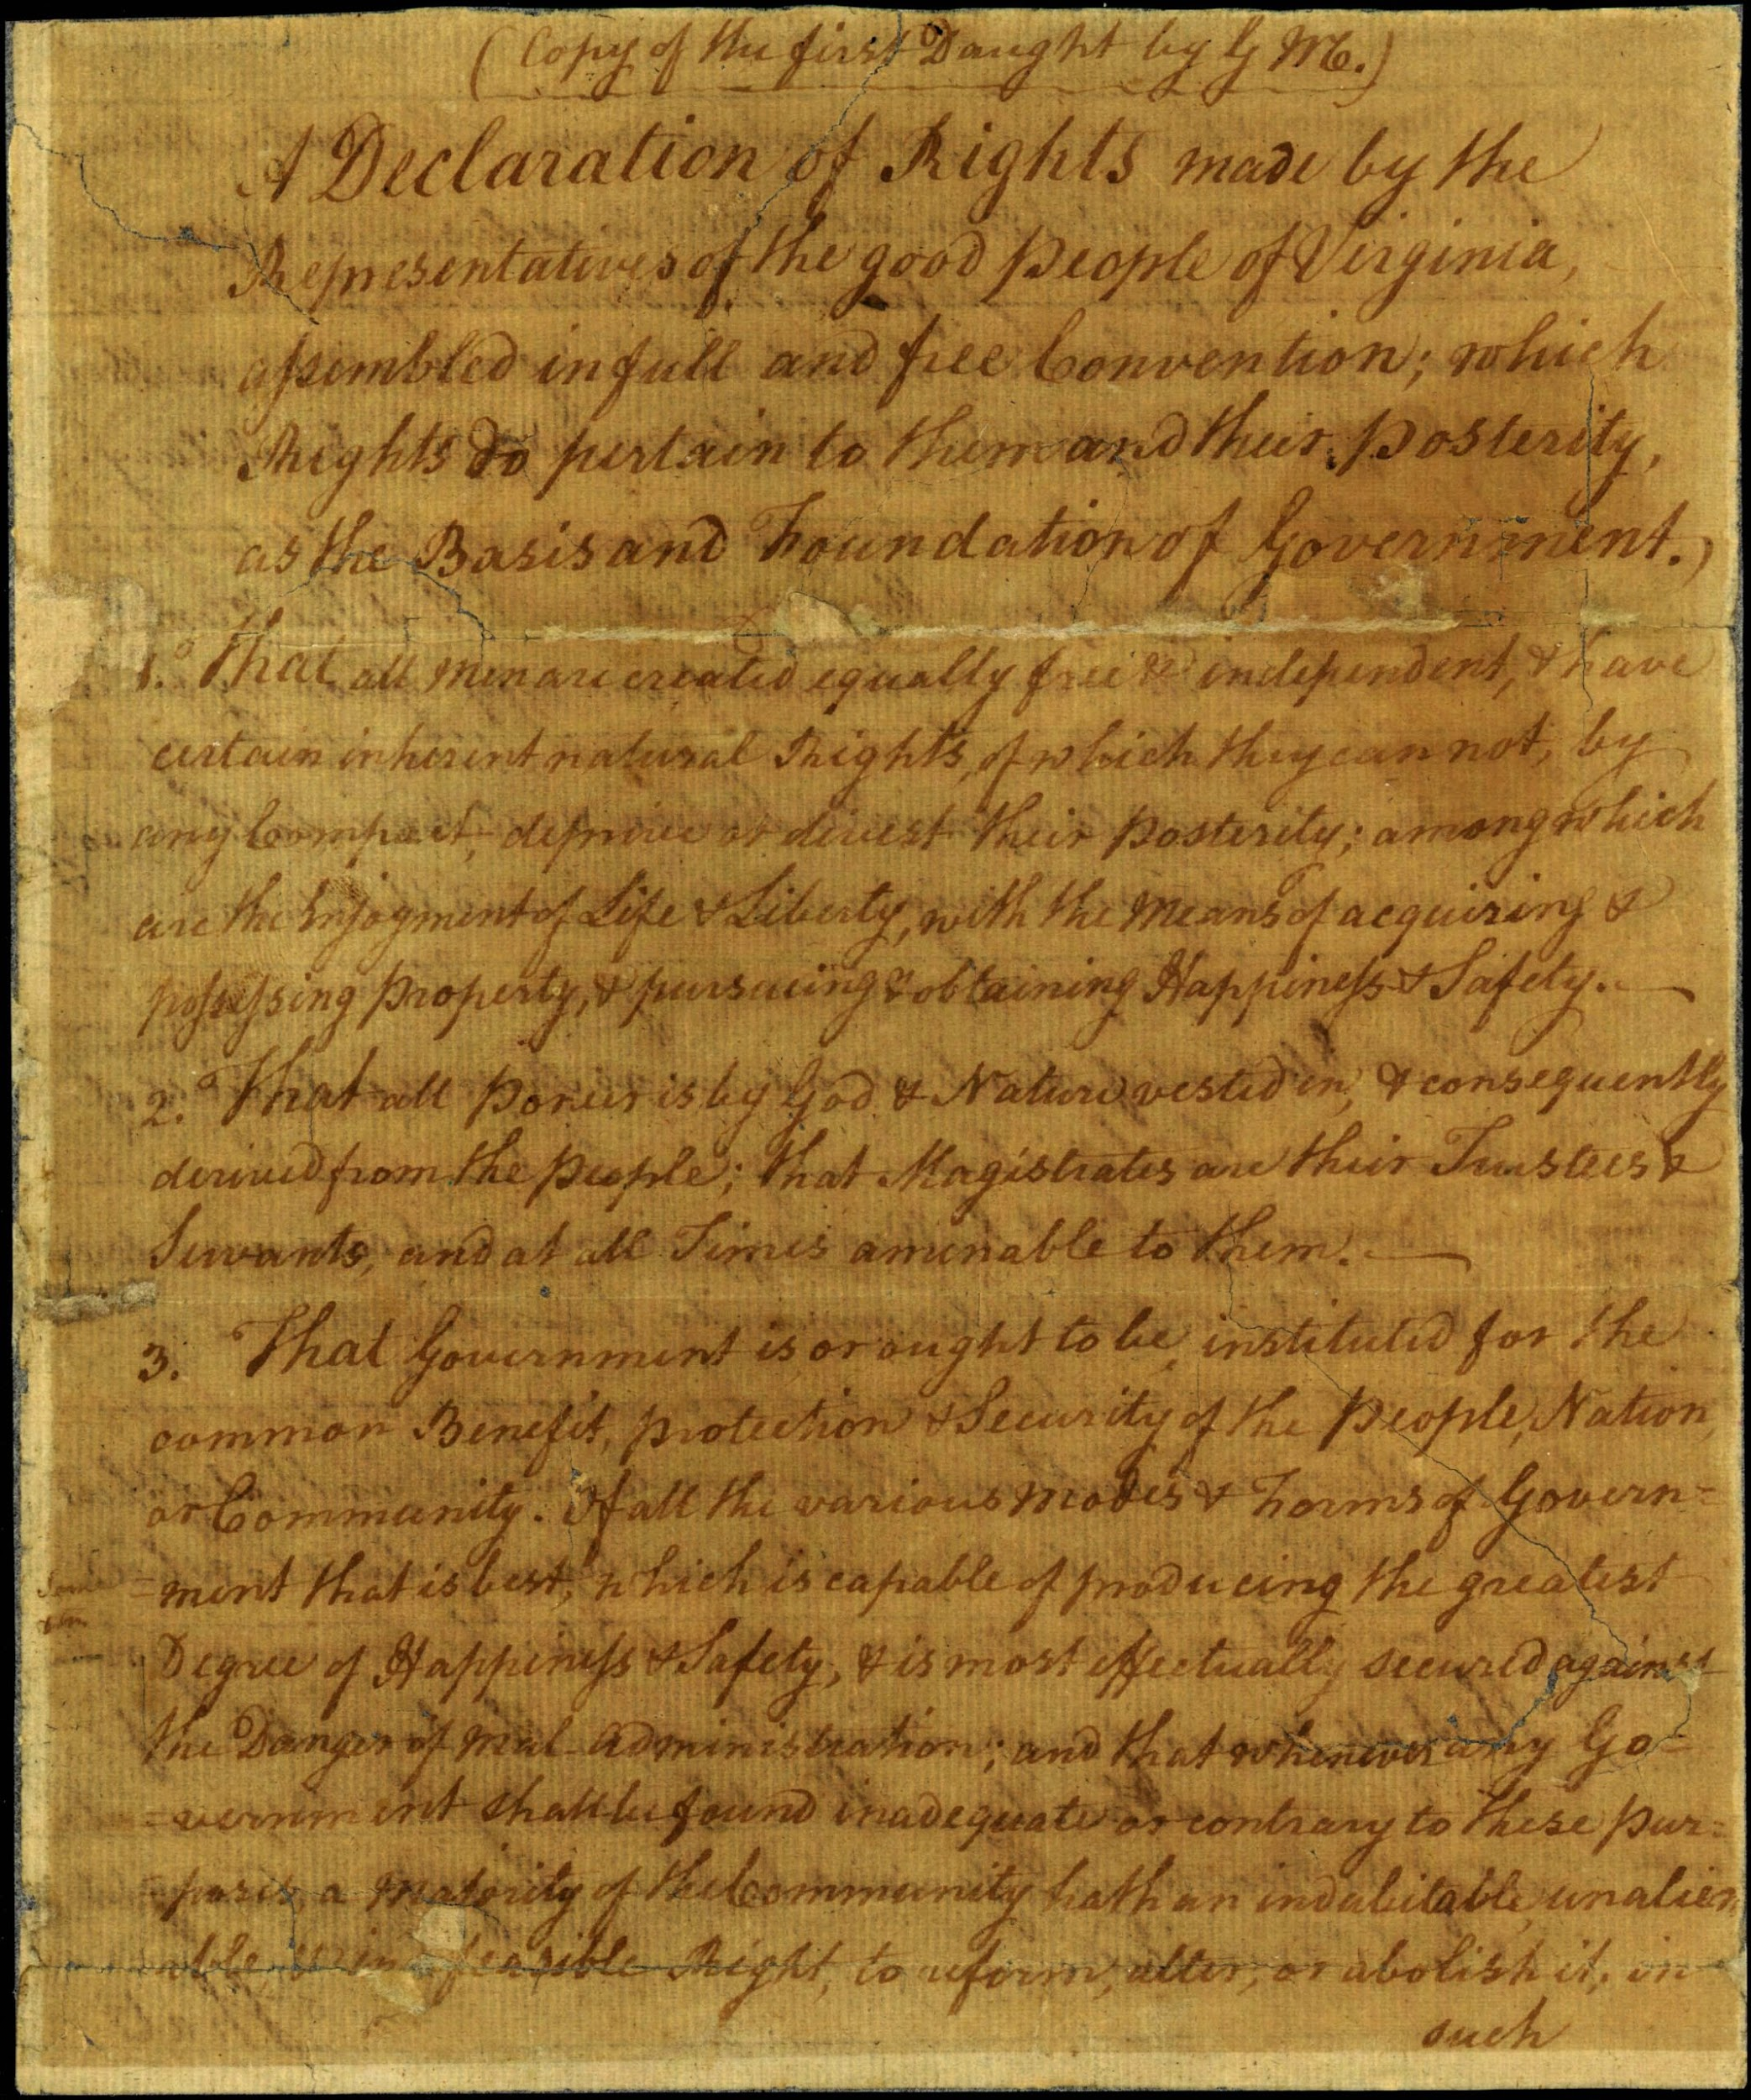 (Copy of the first Daught by G M.)
A Declaration of Rights made by the
Representatives of the good People of Virginia,
assembled in full and free Convention; which
Rights do pertain to them and their Posterity,
as the Basis and Foundation of Government.
1. That all Men are created equally free & independent, & have
certain inherent natural Rights, of which they can not, by
any Compact, deprive or divest their Posterity; among which
are the Enjoyment of Life & Liberty, with the Means of acquiring &
possessing Property, & pursueing & obtaining Happiness & Safety.
2. That all Power is by God & Nature vested in, & consequently
derived from the People; that Magistrates are their Trustees &
Servants, and at all Times amenable to them.
3. That Government is, or ought to be, instituted for the
common Benefit, Protection & Security of the People, Nation,
or Community. Of all the various Modes & Forms of Govern=
=ment that is best, which is capable of producing the greatest
Degree of Happiness & Safety, & is most effectually secured against
the Danger of mal-administration; and that whenever any Go=
=vernment shall be found inadequate or contrary to these Pur=
=poses, a Majority of the Community hath an indubitable unalien
able & indefeasible Right, to reform, alter, or abolish it, in
such